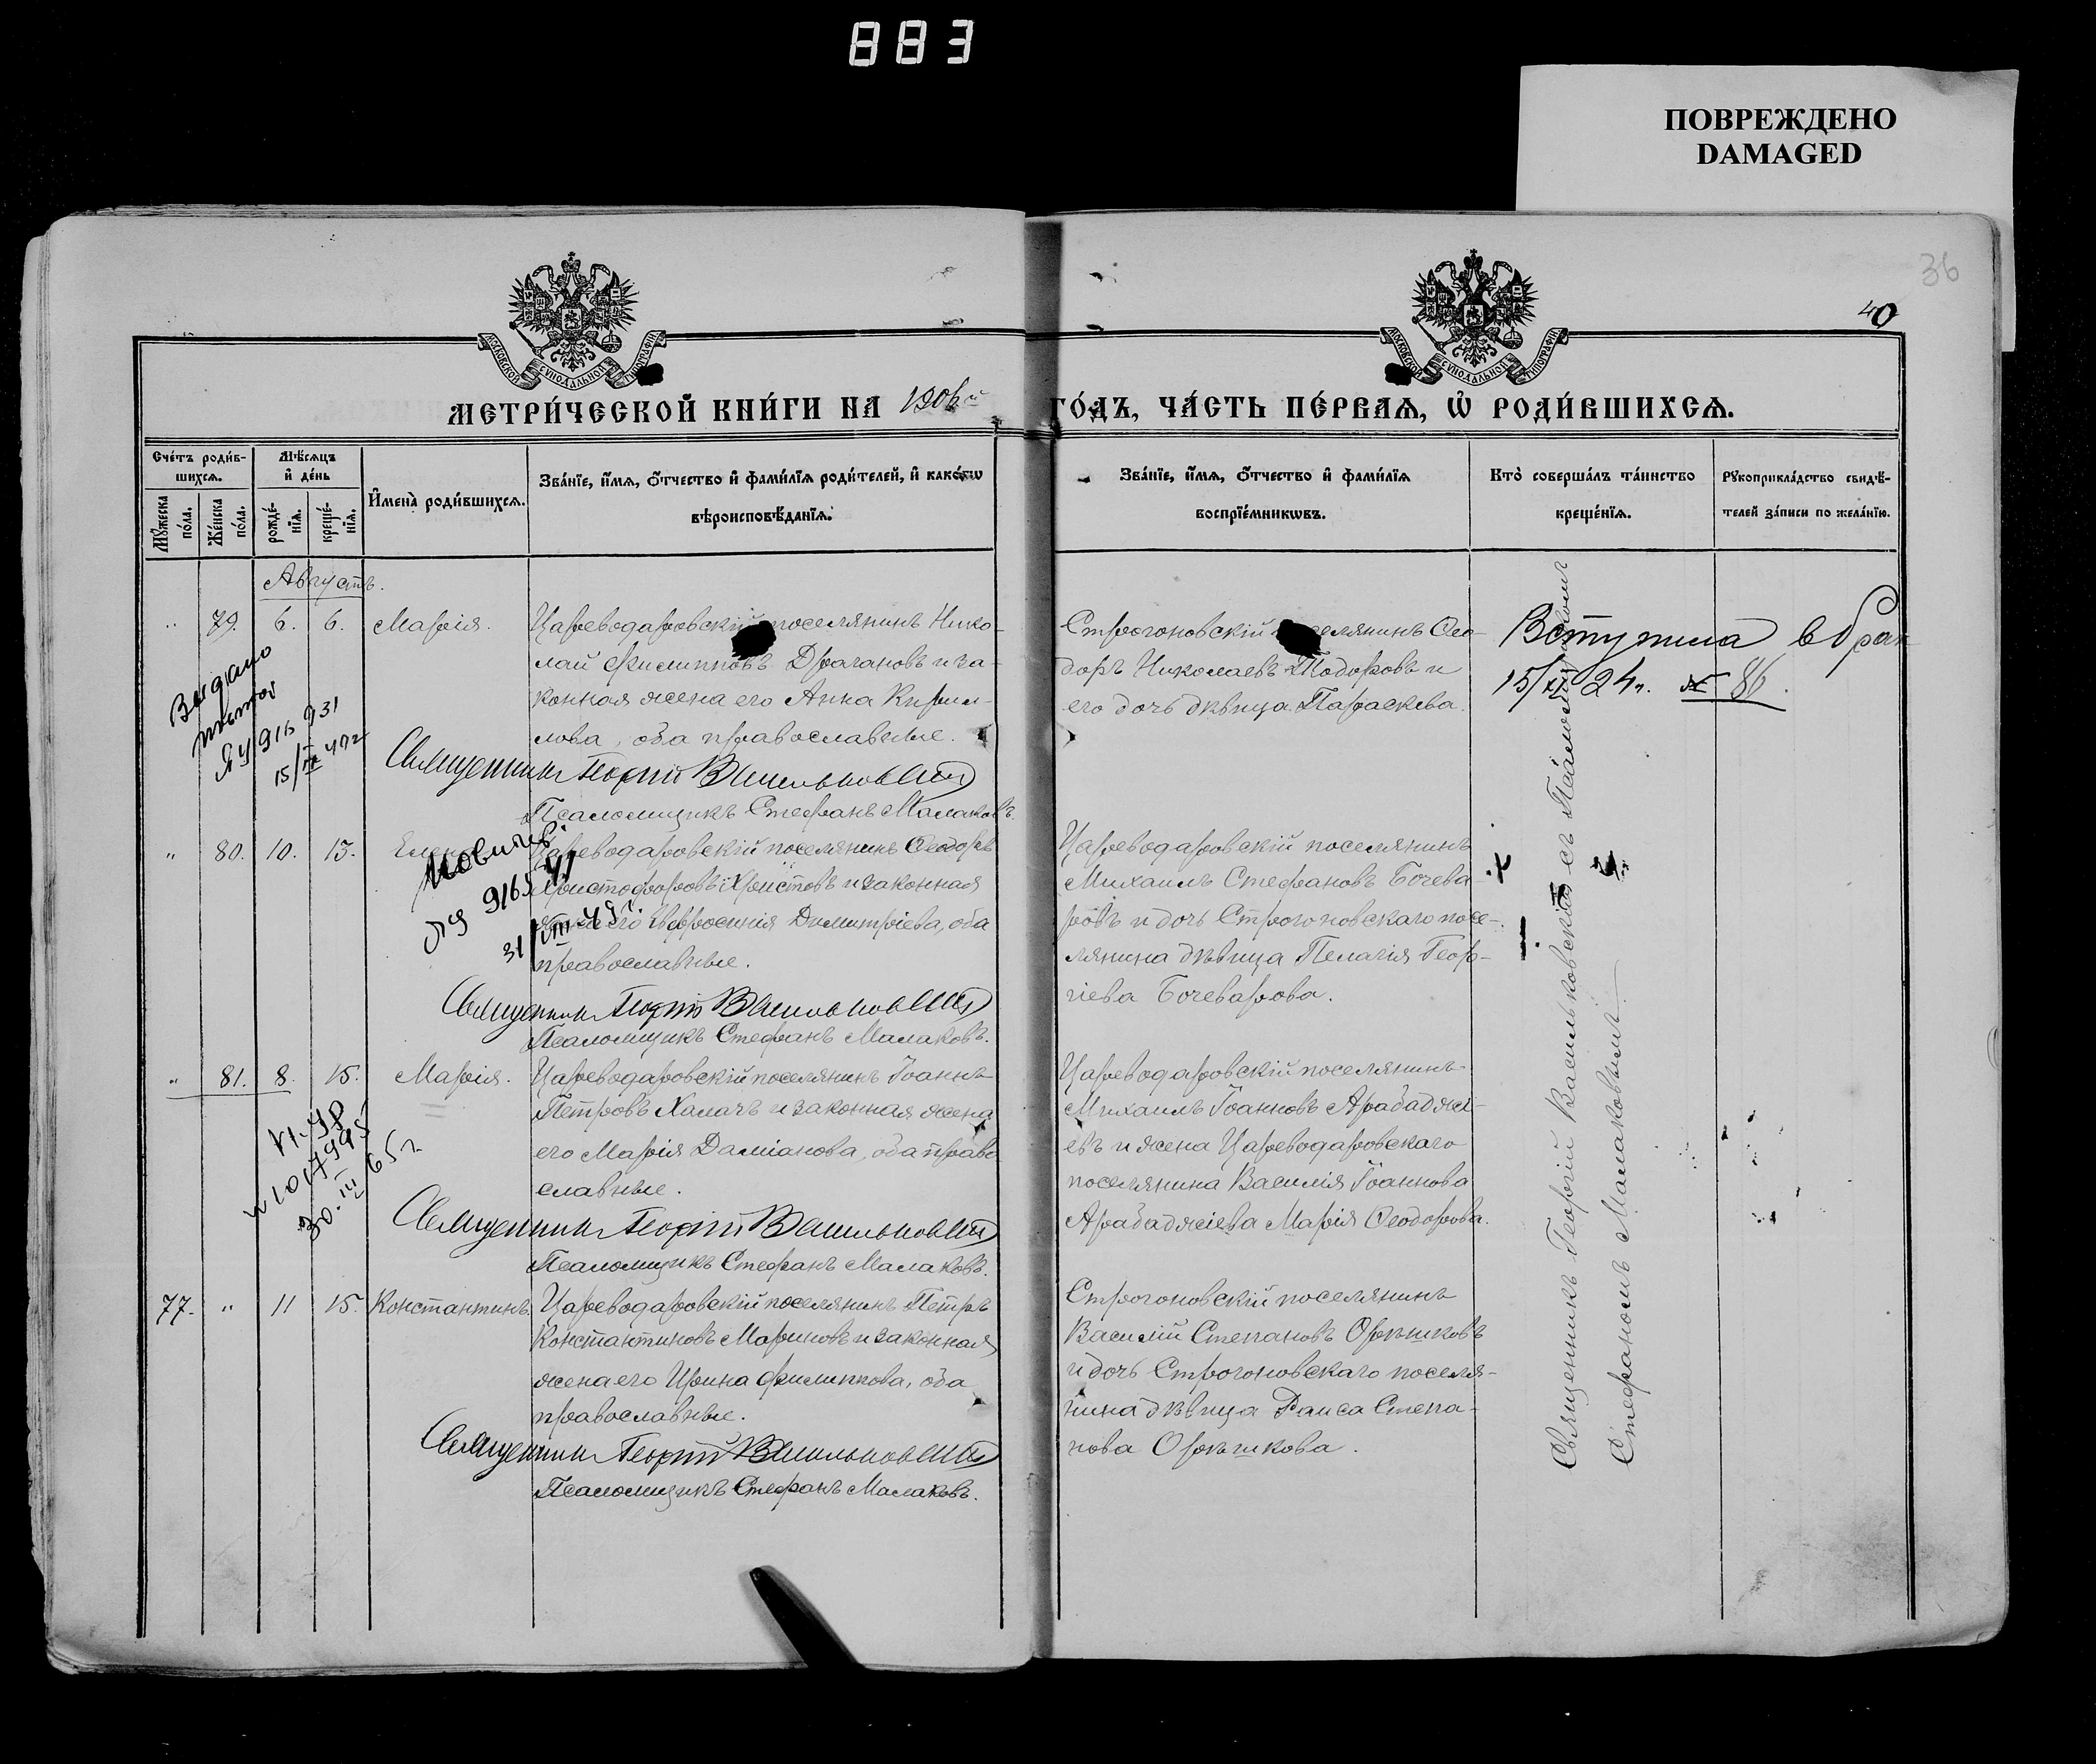 883
ПОВРЕЖДЕНО
DAMAGED
36
40
МОСКОВСКОЙ СѴНОДАЛЬНОЙ ТИПОГРАФІИ
МОСКОВСКОЙ СѴНОДАЛЬНОЙ ТИПОГРАФІИ
МЕТРИ́ЧЕСКОЙ КНИ́ГИ НА 1906й ГО́ДЪ, ЧА́СТЬ ПЕ́РВАѦ, Ѡ РОДИ́ВШИХСѦ.
Сче́тъ роди́в-
шихсѧ.
Мꙋ́жеска
по́ла.
Же́нска
по́ла.
Мѣ́сѧцъ
и де́нь
рожде́-
нїѧ.
креще́-
нїѧ.
Имена̀ роди́вшихсѧ.
Зва́нїе, и́мѧ, о́тчество и фами́лїѧ роди́телей, и како́гѡ
вѣроисповѣ́данїѧ.
Зва́нїе, и́мѧ, о́тчество и фами́лїѧ
воспрїе́мникѡвъ.
Кто̀ соверша́лъ та́инство
креще́нїѧ.
Рꙋкоприкла́дство свидѣ́-
телей за́писи по жела́нїю.
Августъ.
" 79. 6. 6. Марія.
Цареводаровскій поселянинъ Нико-
лай Филипповъ Драгановъ и за-
конная жена его Анна Кирил-
лова, оба православные.
Священникъ Георгій Васильковскій
Псаломщикъ Стефанъ Малаковъ.
Строгоновскій поселянинъ Ѳео-
доръ Николаевъ Тодоровъ и
его дочь дѣвица Параскева.
Вступила в брак
15/XI 24 г. № 86.
Выдано
15/IX
" 80. 10. 13. Елена
Цареводаровскій поселянинъ Ѳеодоръ
Христофоровъ Христовъ и законная
жена его Евфросинія Димитріева, оба
православные.
Священникъ Георгій Васильковскій
Псаломщикъ Стефанъ Малаковъ.
31/VIII
Цареводаровскій поселянинъ
Михаилъ Стефановъ Бочева-
ровъ и дочь Строгоновскаго посе-
лянина дѣвица Пелагія Геор-
гіева Бочеварова.
" 81. 8. 15. Марія.
Цареводаровскій поселянинъ Іоаннъ
Петровъ Халачъ и законная жена
его Марія Даміанова, оба право
славные.
Священникъ Георгій Васильковскій
Псаломщикъ Стефанъ Малаковъ.
30.III 65 г.
Цареводаровскій поселянинъ
Михаилъ Іоанновъ Арабаджі-
евъ и жена Цареводаровскаго
поселянина Василія Іоаннова
Арабаджіева Марія Ѳеодорова.
77. " 11 15. Константинъ.
Цареводаровскій поселянинъ Петръ
Константиновъ Мариновъ и законная
жена его Ирина Филиппова, оба
православные.
Священникъ Георгій Васильковскій
Псаломщикъ Стефанъ Малаковъ.
Строгоновскій поселянинъ
Василій Степановъ Орѣшковъ
и дочь Строгоновскаго поселя-
нина дѣвица Раиса Степа-
нова Орѣшкова.
Священникъ Георгій Васильковскій съ Псаломщикомъ
Стефаномъ Малаковымъ.